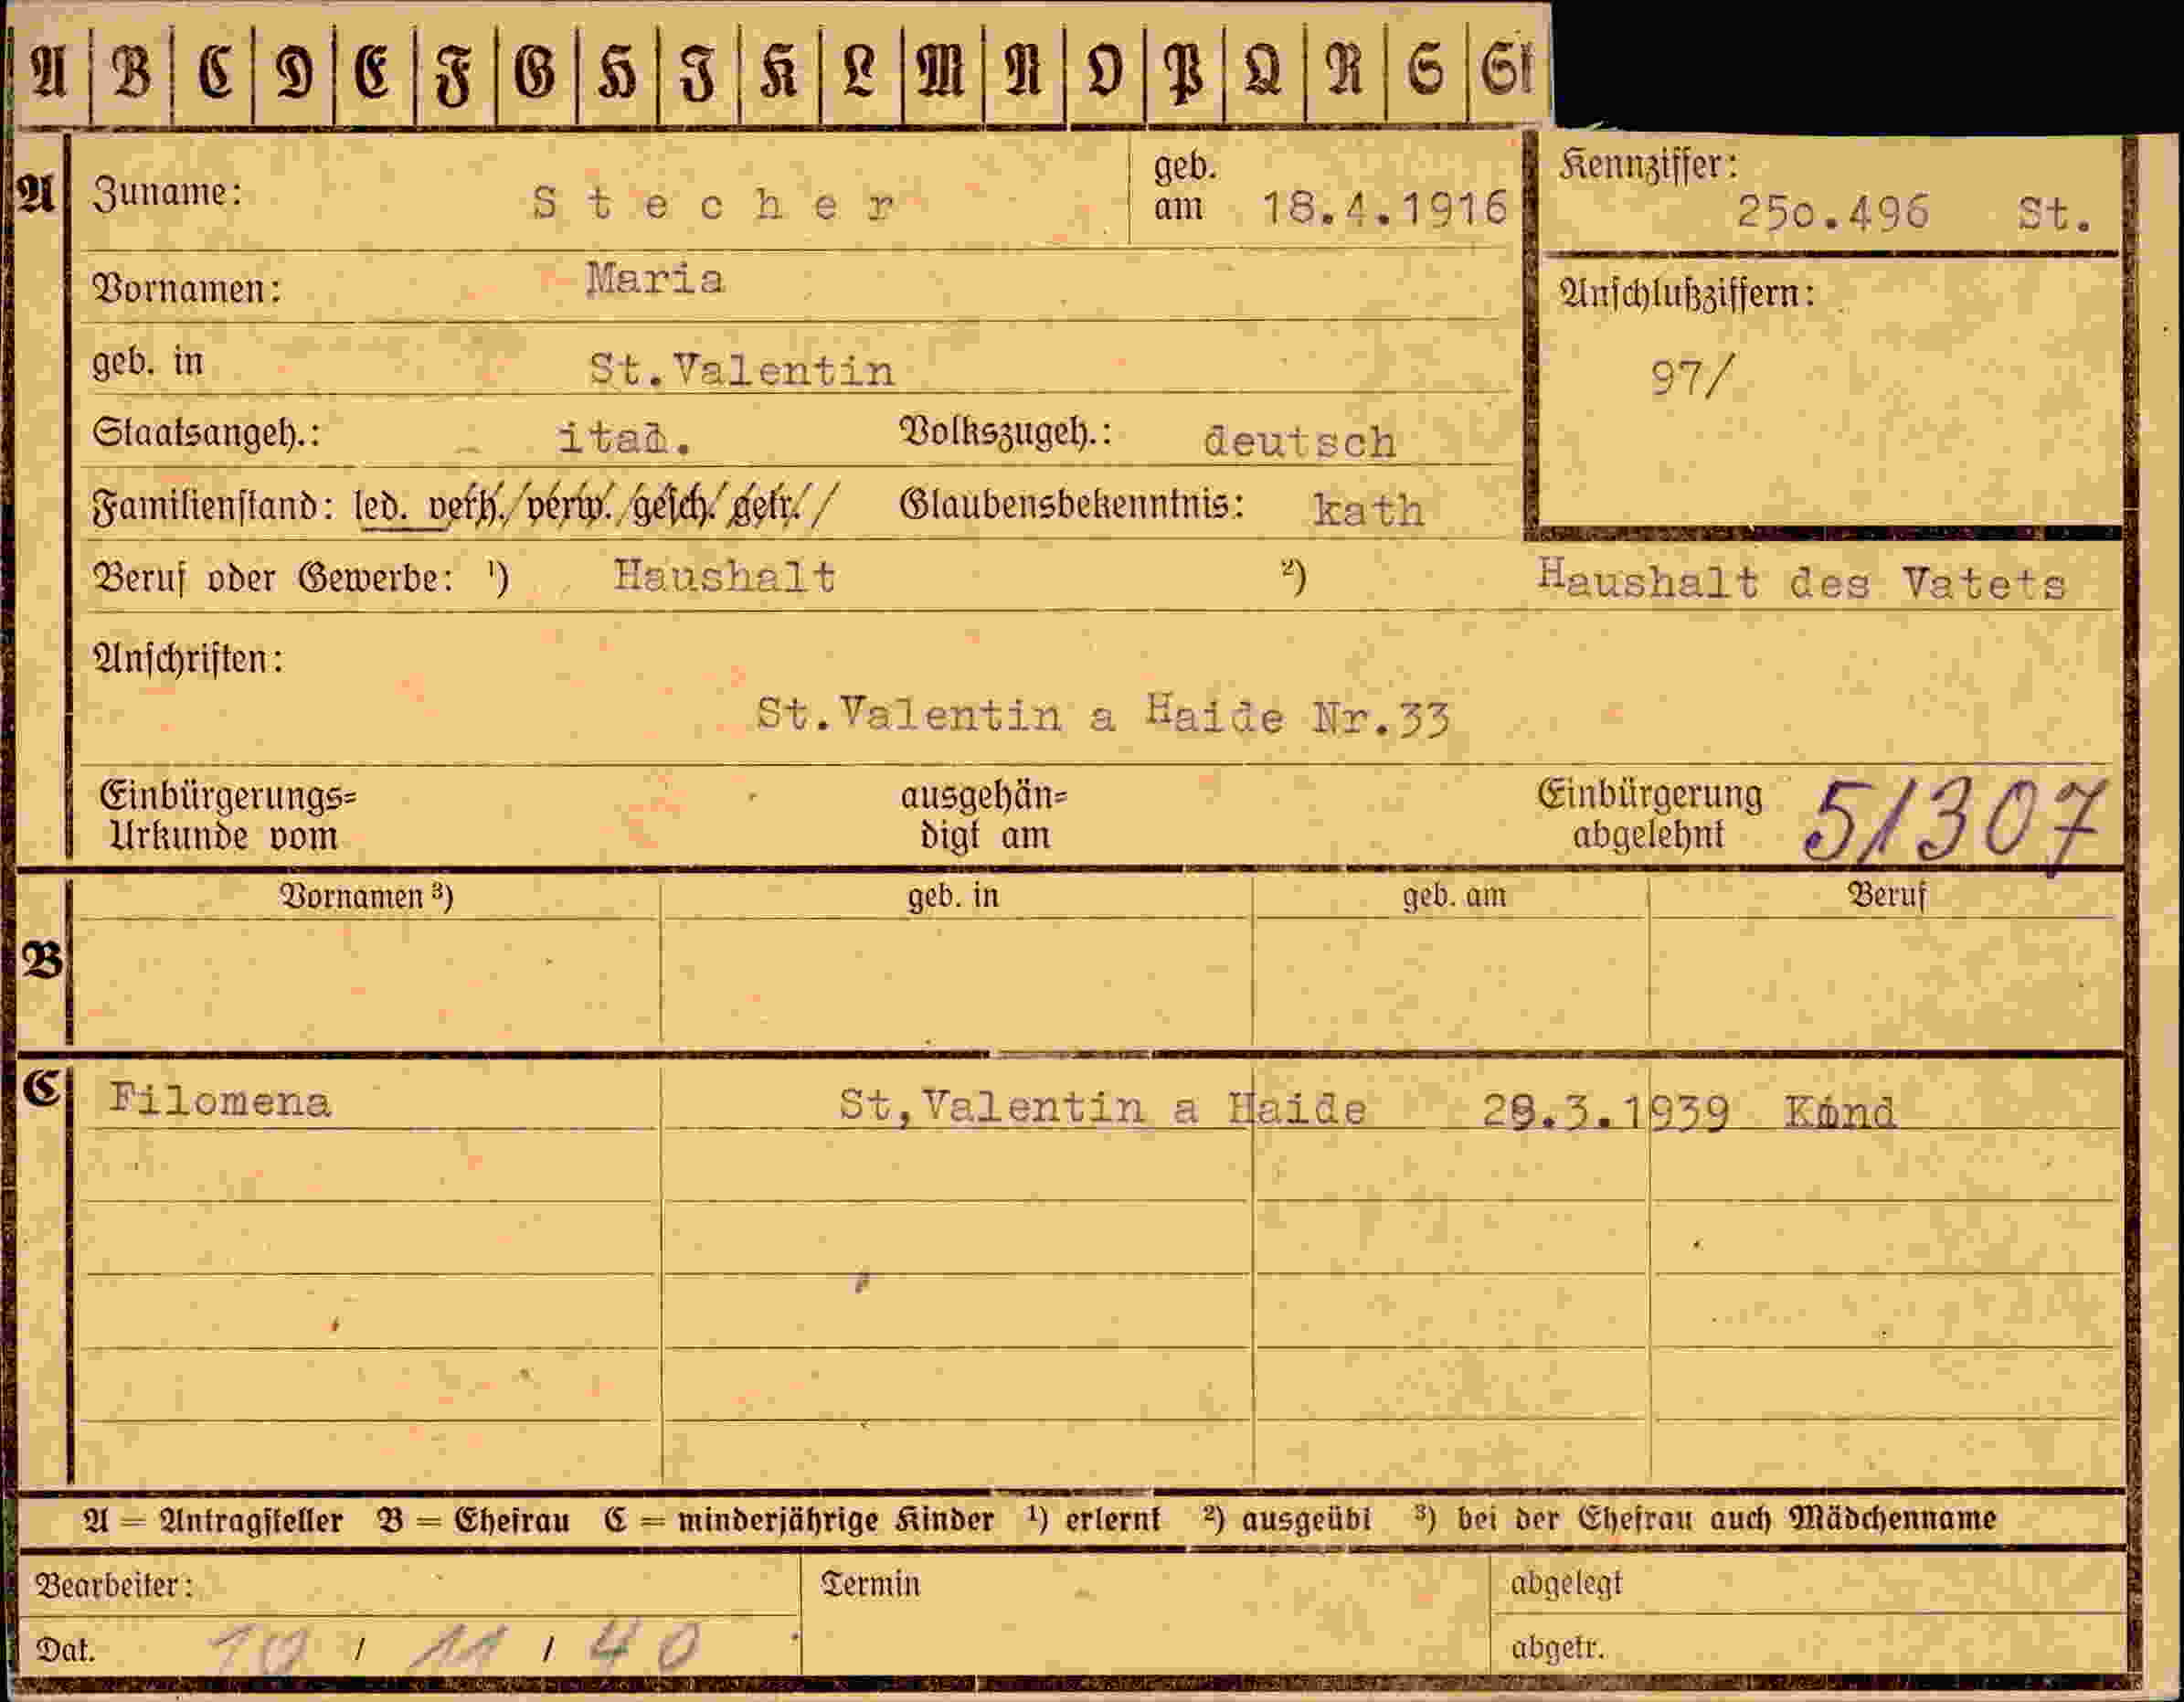 A B C D E F G H I K L M N O P Q R S St
A Zuname: Stecher geb. am 18.4.1916 Kennziffer: 250.496 St.
Vornamen: Maria Anschlußziffern:
geb. in St.Valentin 97/
Staatsangeh.: ital. Volkszugeh.: deutsch
Familienstand: led. verh. / verw. / gesch. / getr. / Glaubensbekenntnis: kath
Beruf oder Gewerbe: ¹) Haushalt ²) Haushalt des Vatets
Anschriften:
St.Valentin a Haide Nr.33
Einbürgerungs= ausgehän= Einbürgerung 51307
Urkunde vom digt am abgelehnt
Vornamen ³) geb. in geb. am Beruf
B
C Filomena St,Valentin a Haide 29.3.1939 Kind
A = Antragsteller B = Ehefrau C = minderjährige Kinder ¹) erlernt ²) ausgeübt ³) bei der Ehefrau auch Mädchenname
Bearbeiter: Termin abgelegt
Dat. 10 / 11 / 40 abgetr.